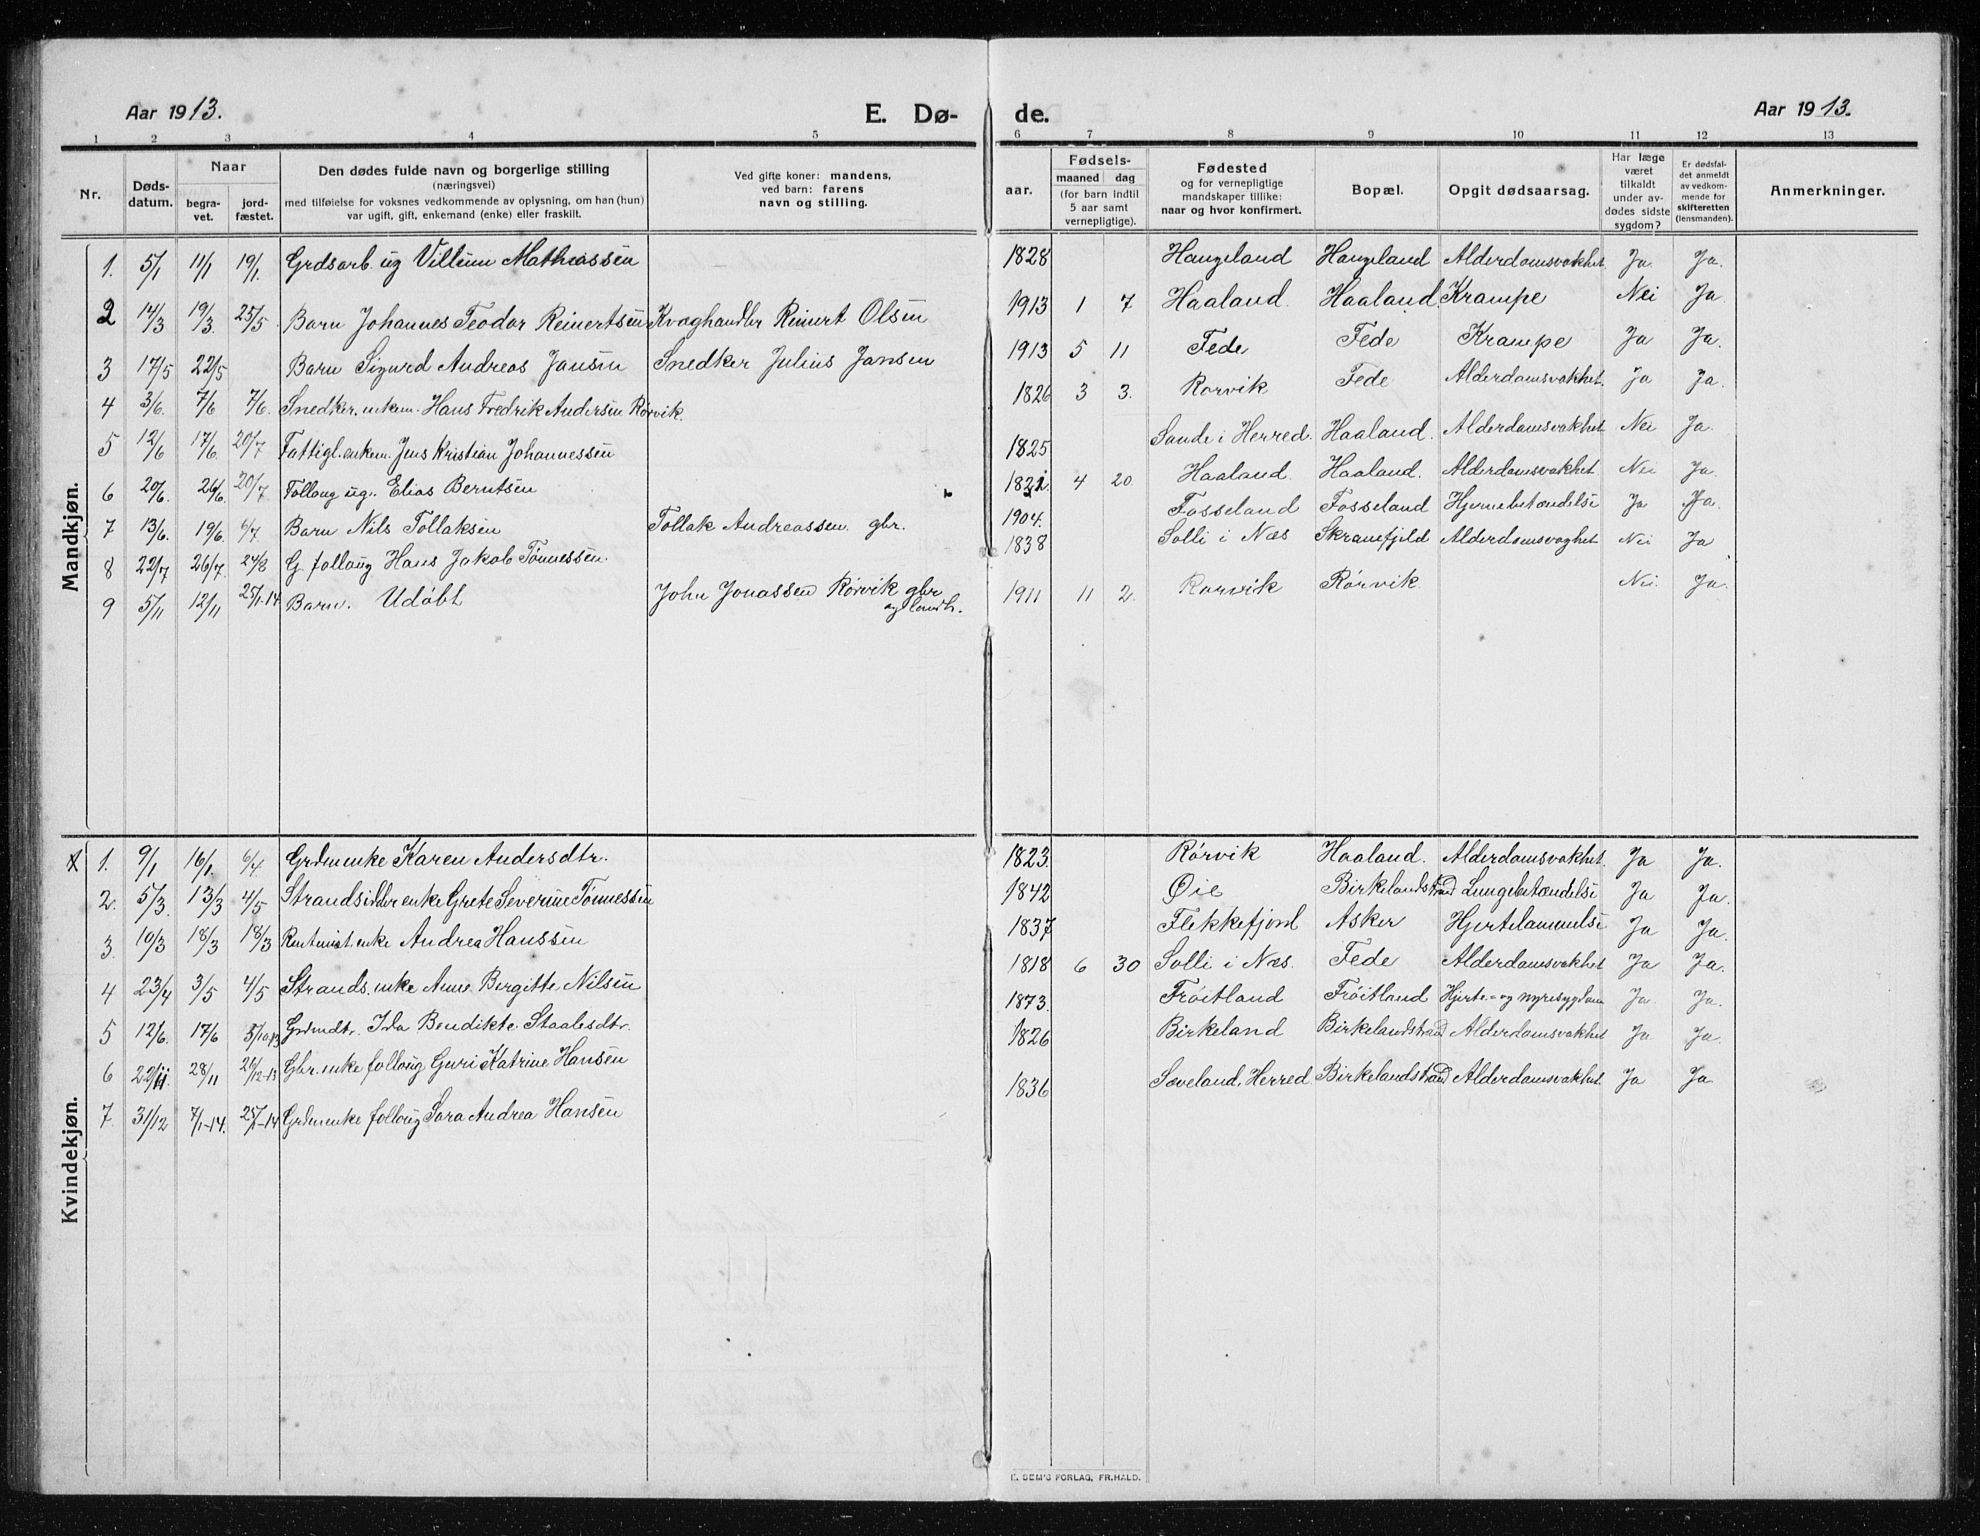 Aar 1913. E. Dø- de. Aar 1913.
1 2 3 4 5 6 7 8 9 10 11 12 13
Nr. Døds-datum. Naar begra-vet. jord-fæstet. Den dødes fulde navn og borgerlige stilling (næringsvei) med tilføielse for voksnes vedkommende av oplysning, om han (hun) var ugift, gift, enkemand (enke) eller fraskilt. Ved gifte koner: mandens, ved barn: farens navn og stilling. Fødsels- aar. maaned dag (for barn indtil 5 aar samt vernepligtige). Fødested og for vernepligtige mandskaper tillike: naar og hvor konfirmert. Bopæl. Opgit dødsaarsag. Har læge været tilkaldt under av-dødes sidste sygdom? Er dødsfal-det anmeldt av vedkom-mende for skifteretten (lensmanden). Anmerkninger.
Mandkjøn.
1. 5/1 11/1 19/1. Grdsarb. ug Villum Mathiassen 1828 Haugeland Haugeland Alderdomsvakhet. Ja Ja.
2 14/3 19/3. 25/5. Barn Johannes Teodor Reinertsen Kvæghandler Reinert Olsen 1913 1 7 Haaland. Haaland Krampe Nei Ja
3 17/5 22/5 Barn Sigurd Andreas Jansen Snedker Julius Jansen 1913 5 11 Fede Fede Krampe Ja Ja.
4 3/6. 7/6 7/6. Snedker. enkem. Hans Fredrik Andersen Rørvik. 1826 3 3. Rørvik Fede Alderdomsvakhet. Ja Ja.
5 12/6 17/6. 20/7 Fattigl. enkem. Jens Kristian Johannessen 1825 Sande i Herred. Haaland. Alderdomsvakhet Nei Ja.
6 20/6. 26/6. 20/7 Follaug ug. Elias Berntsen 1821. 4 20. Haaland. Haaland. Alderdomsvakhet Nei Ja
7 13/6. 19/6. 6/7. Barn Nils Tollaksen Tollak Andreassen gbr. 1904. Fosseland Fosseland Hjernebetændelse Ja Ja.
8 22/7 26/7. 24/8 G. follaug Hans Jakob Tønnessen. 1838 Solli i Næs Skranefjeld Alderdomsvaghet Nei Ja
9 5/11 12/11 25/1-14 Barn. Udøbt John Jonassen Rørvik gbr og landh. 1911 11 2. Rørvik Rørvik Nei Ja.
Kvindekjøn.
1. 9/1 16/1. 6/4. Grdm enke Karen Andersdtr. 1823 Rørvik Haaland. Alderdomsvakhet. Ja Ja.
2. 5/3. 13/3 4/5 Strandsidder enke Grete Severine Tønnessen 1842 Øie Birkelandstrand Lungebetændelse Ja Ja.
3. 10/3 18/3 18/3 Rentenist. enke Andrea Hanssen 1837 Flekkefjord Asker Hjertelammelse Ja Ja.
4 23/4 3/5 4/5 Strands. enke Anne Bergitte Nilsen 1818 6 30 Solli i Næs. Fede Alderdomsvakhet Ja Ja.
5 12/6. 17/6 5/10-13 Grdmdtr. Ida Bendikte Staalesdtr. 1873. Frøitland Frøitland Hjerte- og nyresygdom Ja. Ja.
6 22/11. 28/11 21/12-13 Gbr. enke follaug Guri Katrine Hansen 1826 Birkeland Birkelandstrand Alderdomsvakhet Ja Ja.
7. 31/12 7/1-14. 25/1-14 Grdm enke follaug Sara Andrea Hansen 1836 Sæveland, Herred Birkelandstrand Alderdomsvakhet. Ja Ja
E. SEM'S FORLAG, FR.HALD.